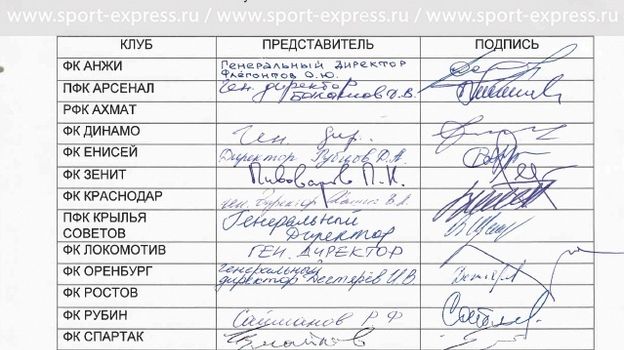 www.sport-express.ru / www.sport-express.ru / www.sport-express.ru
КЛУБ ПРЕДСТАВИТЕЛЬ ПОДПИСЬ
ФК АНЖИ Генеральный директор
Флегонтов О.Ю.
ПФК АРСЕНАЛ Ген. директор
РФК АХМАТ
ФК ДИНАМО Ген. дир.
ФК ЕНИСЕЙ Директор Рубцов Д.А.
ФК ЗЕНИТ Пивоваров П.К.
ФК КРАСНОДАР ген. директор
ПФК КРЫЛЬЯ Генеральный
СОВЕТОВ Директор
ФК ЛОКОМОТИВ ГЕН. ДИРЕКТОР
ФК ОРЕНБУРГ Генеральный
директор И.В.
ФК РОСТОВ
ФК РУБИН Сайманов РФ
ФК СПАРТАК